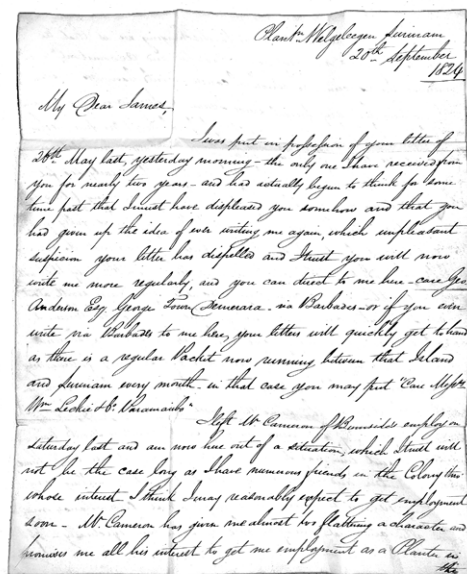 Plantn. Welgelegen Surinam
20th September
1824
My Dear James,
I was put in possession of your letter of
26th May last, yesterday morning - the only one I have received from
you for nearly two years - and had actually begun to think for some
time past that I must have displeased you somehow and that you
had given up the idea of ever writing me again, which unpleasant
suspicion your letter has dispelled and I trust you will now
write me more regularly, and you can direct to me here - care Geo
Anderson Esq. George Town Demerara - via Barbados - or if you even
write via Barbados to me here, your letters will quickly get to hand
as there is a regular Packet now running between that Island
and Surinam every month - in that case you may put "Care Messrs
Wm Leckie & Co. Paramaribo"
I left Mr Cameron of Burnside's employ on
saturday last and am now here out of a situation, which I trust will
not be the case long as I have numerous friends in the Colony thro'
whose interest I think I may reasonably expect to get employment
soon - Mr. Cameron has given me almost too flattering a character and
promises me all his interest to get me employment as a Planter in
the